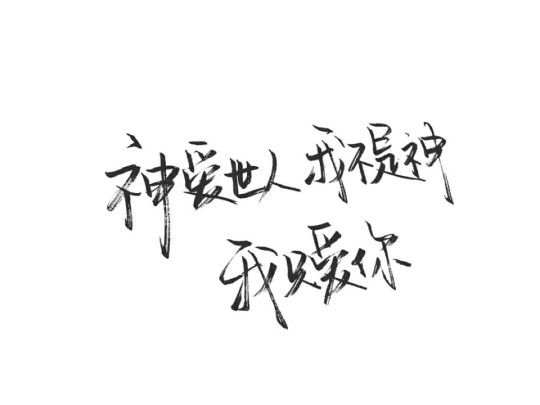 神爱世人 我不是神
我只爱你